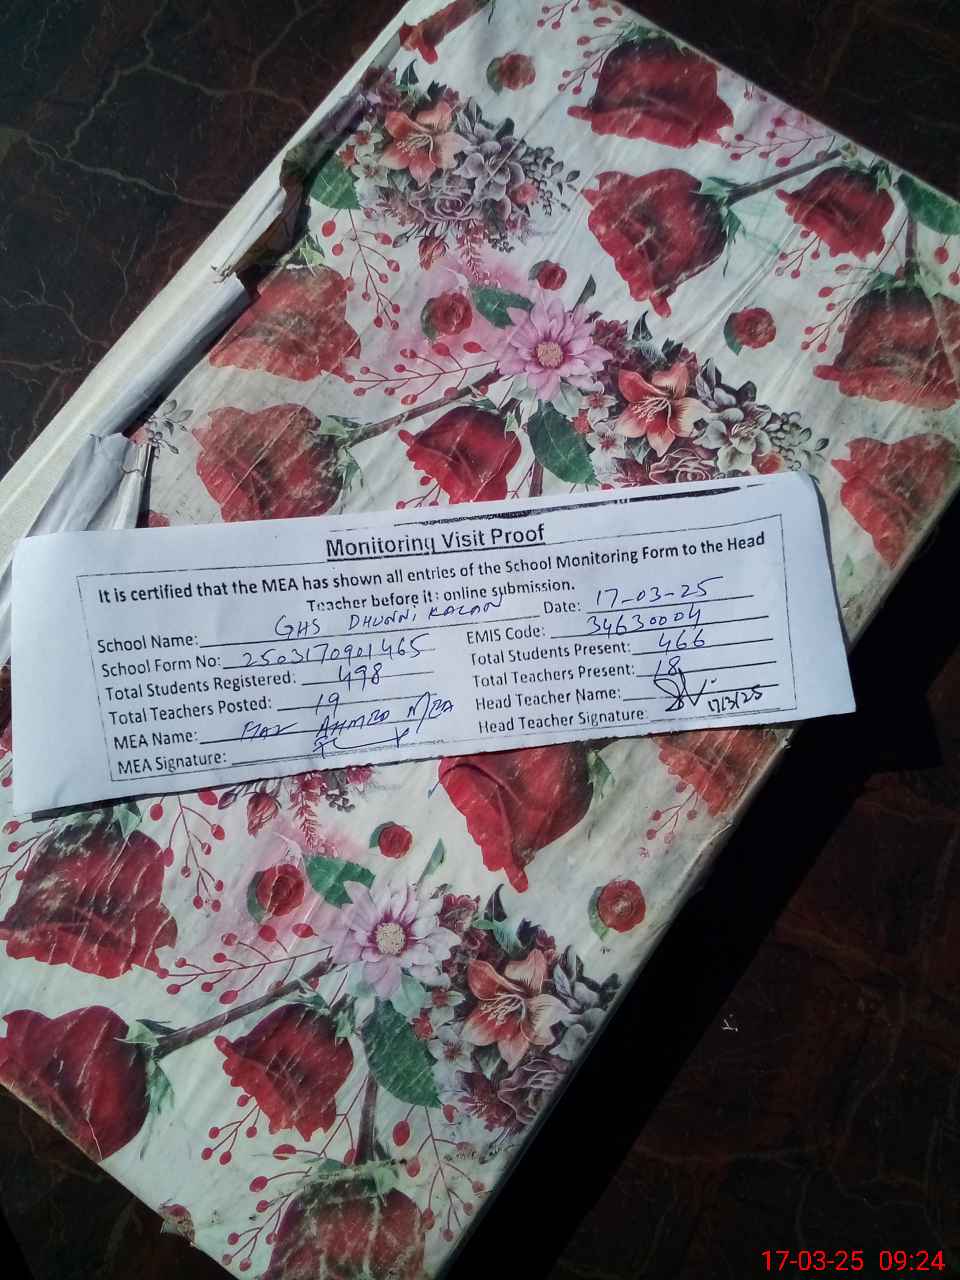 Monitoring Visit Proof
It is certified that the MEA has shown all entries of the School Monitoring Form to the Head
Teacher before it: online submission.
School Name: GHS DHUNNI KALAN Date: 17-03-25
School Form No: 2503170901465 EMIS Code: 34630004
Total Students Registered: 498 Total Students Present: 466
Total Teachers Posted: 19 Total Teachers Present: 18
MEA Name: AHMED MEA Head Teacher Name:
MEA Signature: Head Teacher Signature: 17/3/25
17-03-25 09:24